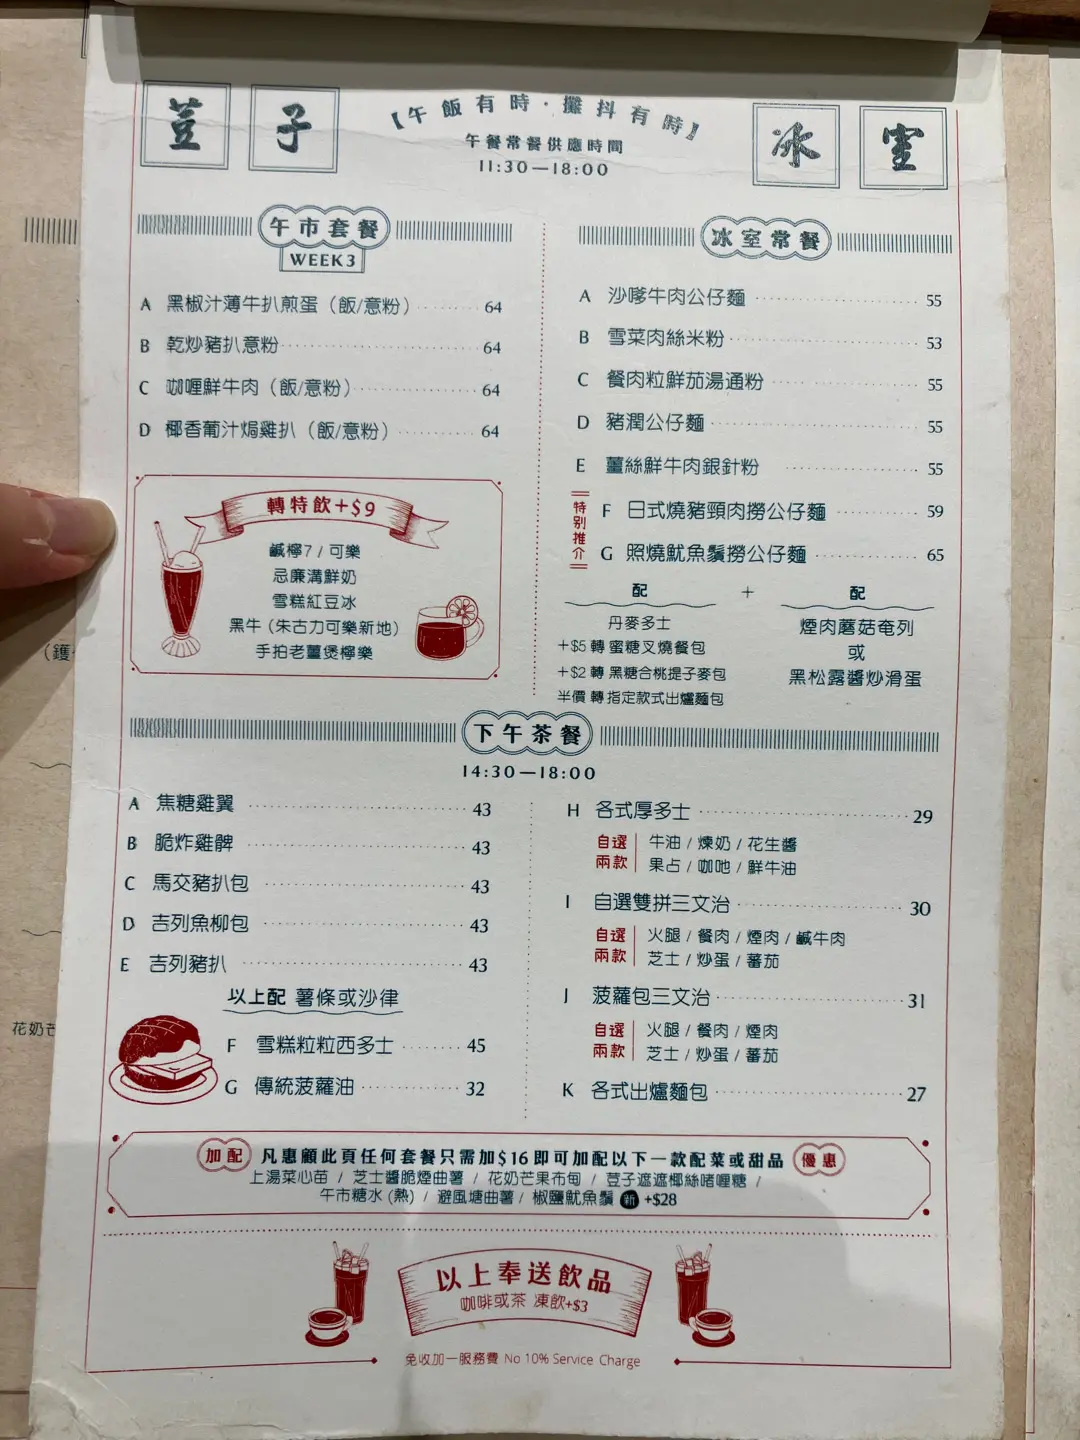 荳子冰室
【午飯有時·攤抖有時】
午餐常餐供應時間
11:30—18:00
午市套餐
WEEK3
A 黑椒汁薄牛扒煎蛋（飯/意粉） 64
B 乾炒豬扒意粉 64
C 咖喱鮮牛肉（飯/意粉） 64
D 椰香葡汁焗雞扒（飯/意粉） 64
轉特飲+$9
鹹檸7 / 可樂
忌廉溝鮮奶
雪糕紅豆冰
黑牛 (朱古力可樂新地)
手拍老薑煲檸樂
冰室常餐
A 沙嗲牛肉公仔麵 55
B 雪菜肉絲米粉 53
C 餐肉粒鮮茄湯通粉 55
D 豬潤公仔麵 55
E 薑絲鮮牛肉銀針粉 55
特別推介
F 日式燒豬頸肉撈公仔麵 59
G 照燒魷魚鬚撈公仔麵 65
配 + 配
丹麥多士
+$5 轉 蜜糖叉燒餐包
+$2 轉 黑糖合桃提子麥包
半價 轉 指定款式出爐麵包
煙肉蘑菇奄列
或
黑松露醬炒滑蛋
下午茶餐
14:30—18:00
A 焦糖雞翼 43
B 脆炸雞髀 43
C 馬交豬扒包 43
D 吉列魚柳包 43
E 吉列豬扒 43
以上配 薯條或沙律
F 雪糕粒粒西多士 45
G 傳統菠蘿油 32
H 各式厚多士 29
自選兩款
牛油 / 煉奶 / 花生醬
果占 / 咖吔 / 鮮牛油
I 自選雙拼三文治 30
自選兩款
火腿 / 餐肉 / 煙肉 / 鹹牛肉
芝士 / 炒蛋 / 蕃茄
J 菠蘿包三文治 31
自選兩款
火腿 / 餐肉 / 煙肉
芝士 / 炒蛋 / 蕃茄
K 各式出爐麵包 27
加配 凡惠顧此頁任何套餐只需加$16即可加配以下一款配菜或甜品 優惠
上湯菜心苗 / 芝士醬脆煙曲薯 / 花奶芒果布甸 / 荳子遮遮椰絲啫喱糖 /
午市糖水 (熱) / 避風塘曲薯 / 椒鹽魷魚鬚 新 +$28
以上奉送飲品
咖啡或茶 凍飲+$3
免收加一服務費 No 10% Service Charge
(鑊
花奶芒